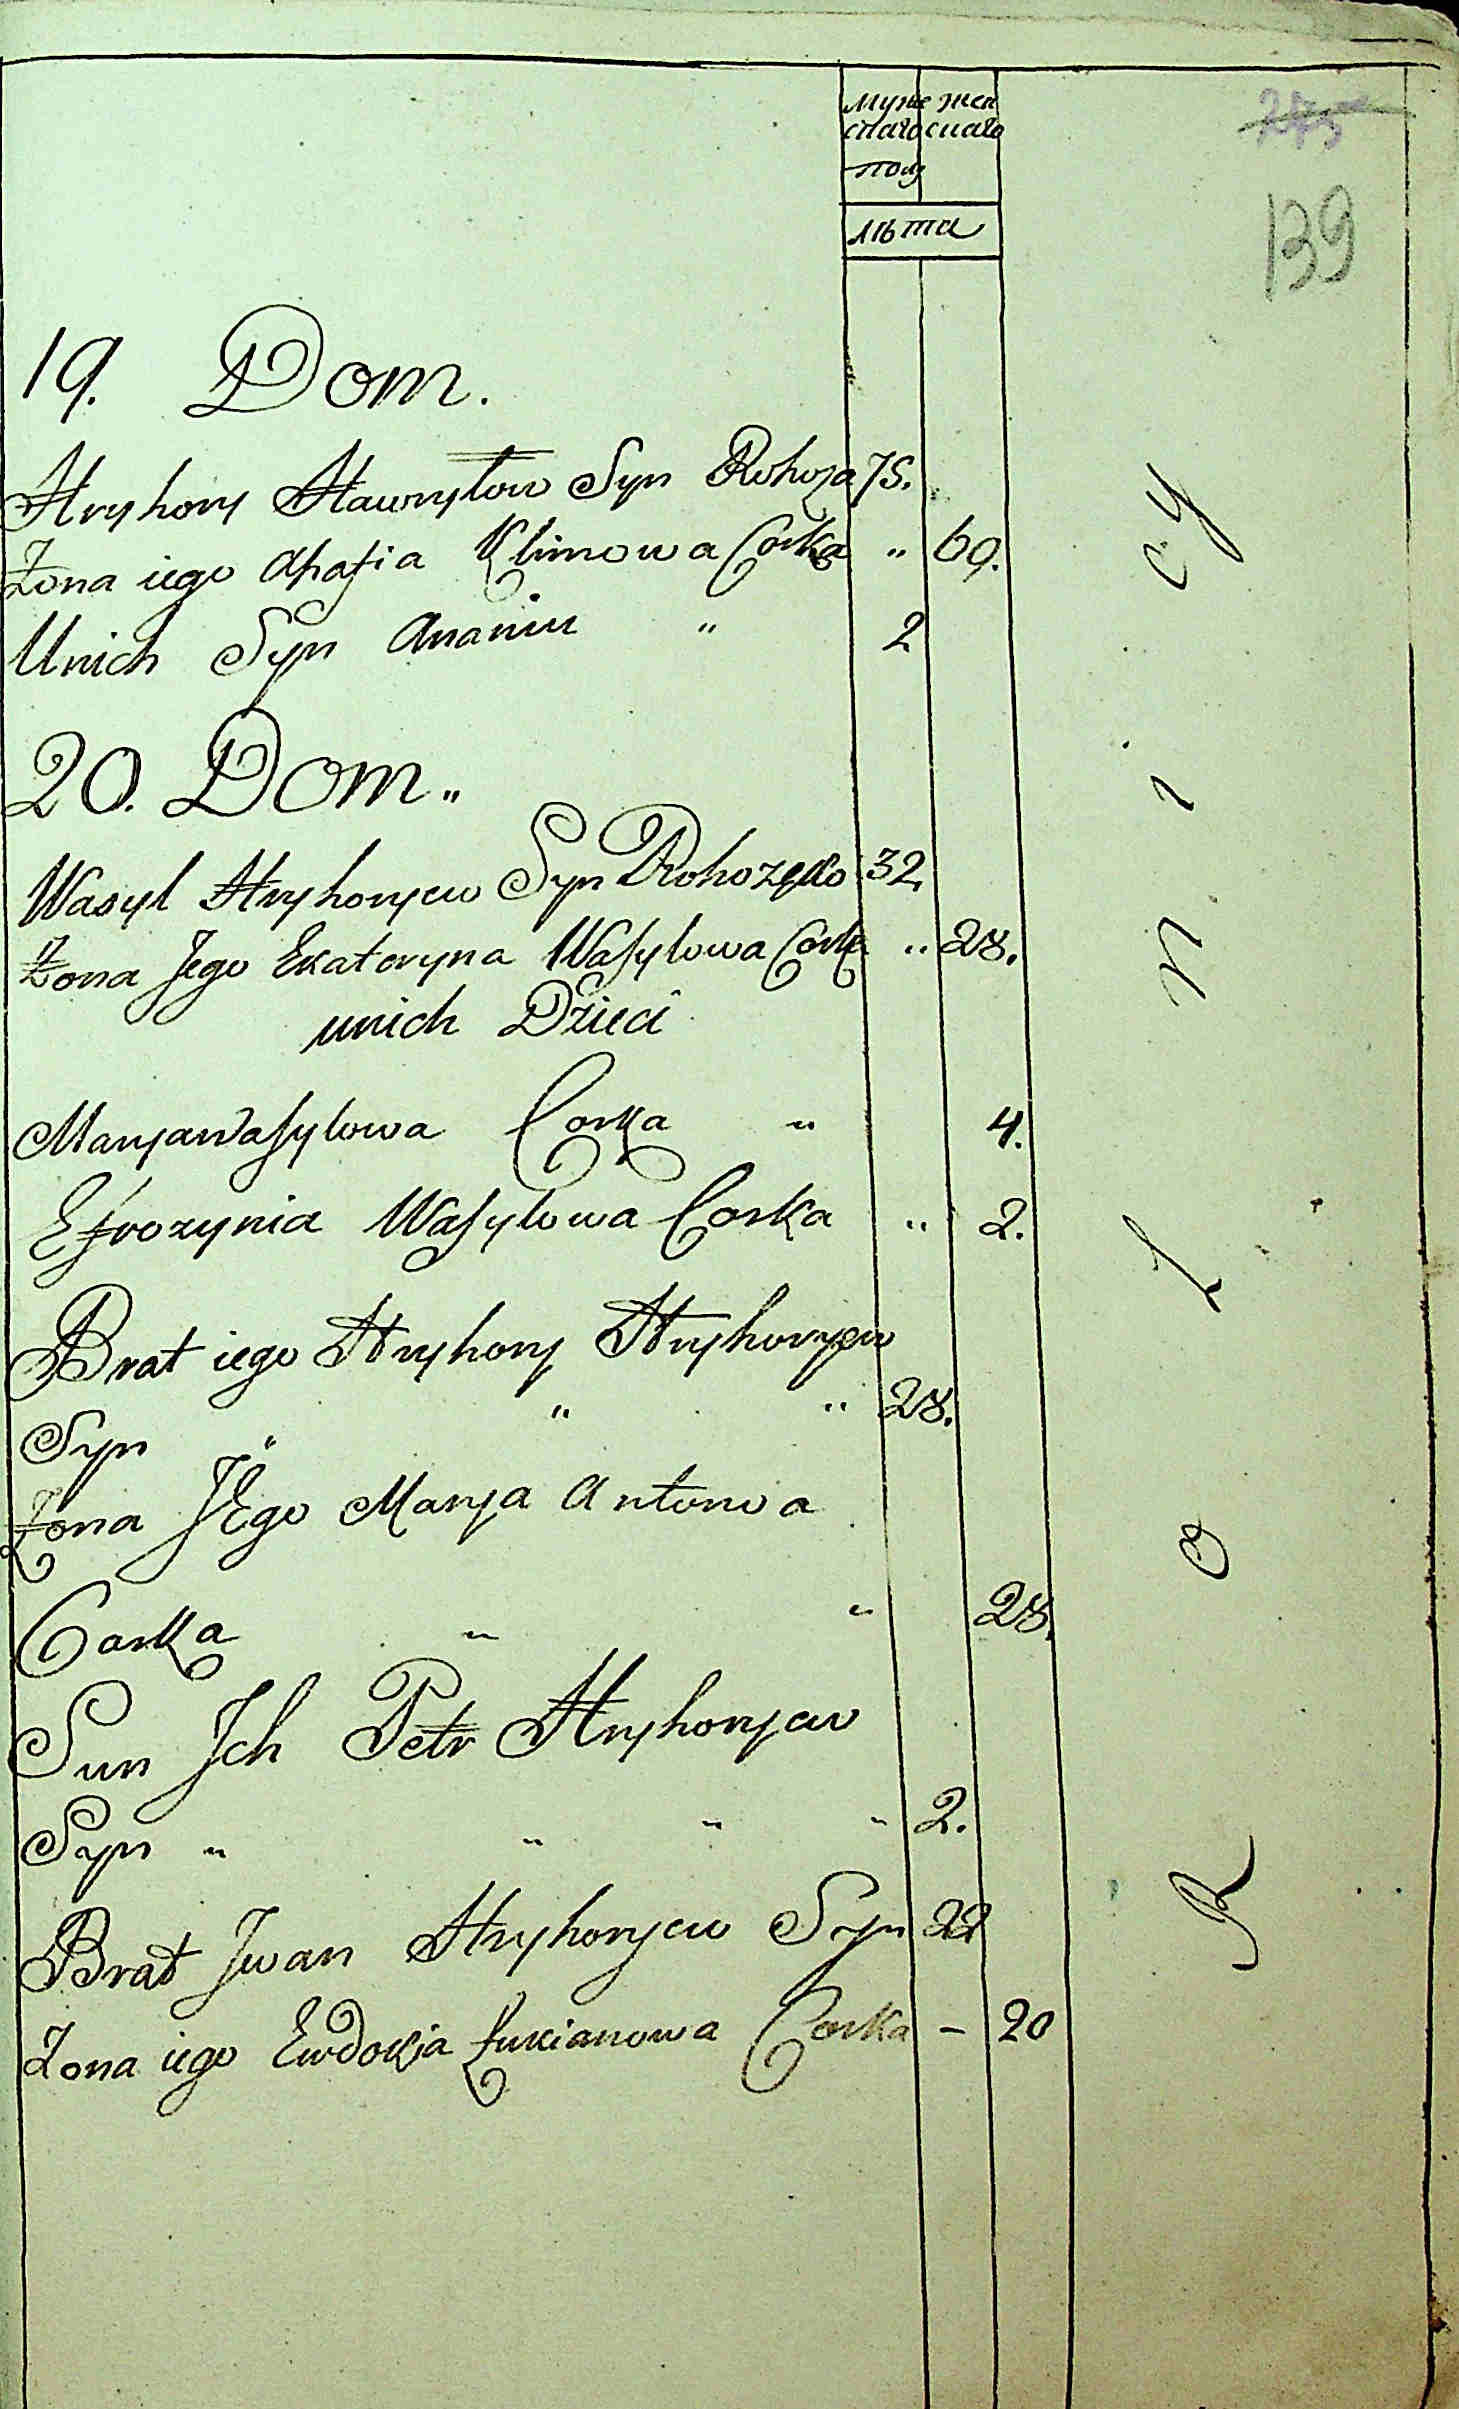 муже жен
скаго скаго
полу
лѣта
139
19. Dom.
Hryhory Hawryłow Syn Rohoza 75.
Żona iego Ahafia Klimowa Corka " 69.
Unich Syn Ananiu " 2
20. Dom "
Wasyl Hryhoryew Syn Rohozęko 32.
Żona Jego Ekateryna Wasylowa Corka " 28.
unich Dzieci
Marya Wasylowa Corka " 4.
Efrozynia Wasylowa Corka " 2.
Brat iego Hryhory Hryhoryew
Syn " " " 28.
Żona JEgo Marya Antonowa
Corka " " 28.
Sun Jch Petr Hryhoryew
Syn " " " " 2.
Brat Jwan Hryhoryew Syn 22
Żona iego Ewdokja Łukianowa Corka – 20
Rolnicy